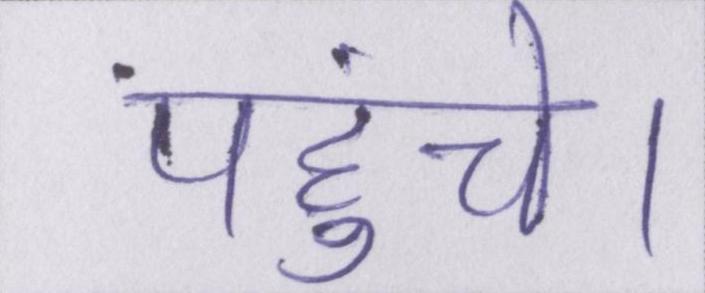 पंहुंचे।